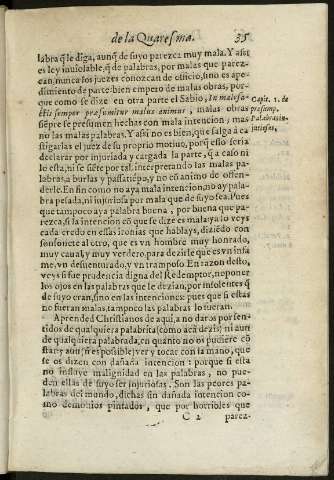 de la Quaresma. 35
labra q̃ le diga, aunq̃ de suyo parezca muy mala. Y assi
es ley inuiolable, q̃ de palabras, por malas que parez-
can, nunca los juezes conozcan de officio, sino es a pe-
dimiento de parte: bien empero de malas obras, por-
que como se dize en otra parte el Sabio, In malefa-
ctis semper præsumitur malus animus, malas obras
siẽpre se presumen hechas con mala intencion; mas
no las malas palabras. Y assi no es bien, que salga a ca
stigarlas el juez de su proprio motiuo, porq̃ esso seria
declarar por injuriada y cargada la parte, q̃ a caso ni
lo esta, ni se siẽte por tal, interpretando las malas pa-
labras, a burlas y passatiẽpo, y no cõ animo de offen-
derle. En fin como no aya mala intencion, no ay pala-
bra pesada, ni injuriosa por mala que de suyo sea. Pues
que tampoco aya palabra buena, por buena que pa-
rezca, si la intencion cõ que se dize es mala, ya lo veys
cada credo en essas ironias que hablays, diziẽdo con
sonsonete al otro, que es vn hombre muy honrado,
muy caual, y muy verdero, para dezirle que es vn infa
me, vn desuenturado, y vn tramposo En razon desto,
veys si fue prudencia digna del Redemptor, ne poner
los ojos en las palabras que le dezian, por insolentes q̃
de suyo eran, sino en las intenciones: pues que si estas
no fueran malas, tampoco las palabras lo fueran.
Aprended Christianos de aqui, a no daros por sen-
tidos de qualquiera palabrita (como acà dezis) ni aun
de qualquiera palabrada, en quanto no os pudiere cõ
star, y aun (si es possible) ver y tocar con la mano, que
se os dizen con dañada intencion: porque si ella
no influye malignidad en las palabras, no pue-
den ellas de suyo ser injuriosas. Son las peores pa-
labras del mundo, dichas sin dañada intencion co-
mo demonios pintados, que por horribles que
C 2 parez-
Capit. 1. de
præsump.
Palabras in-
juriosas,